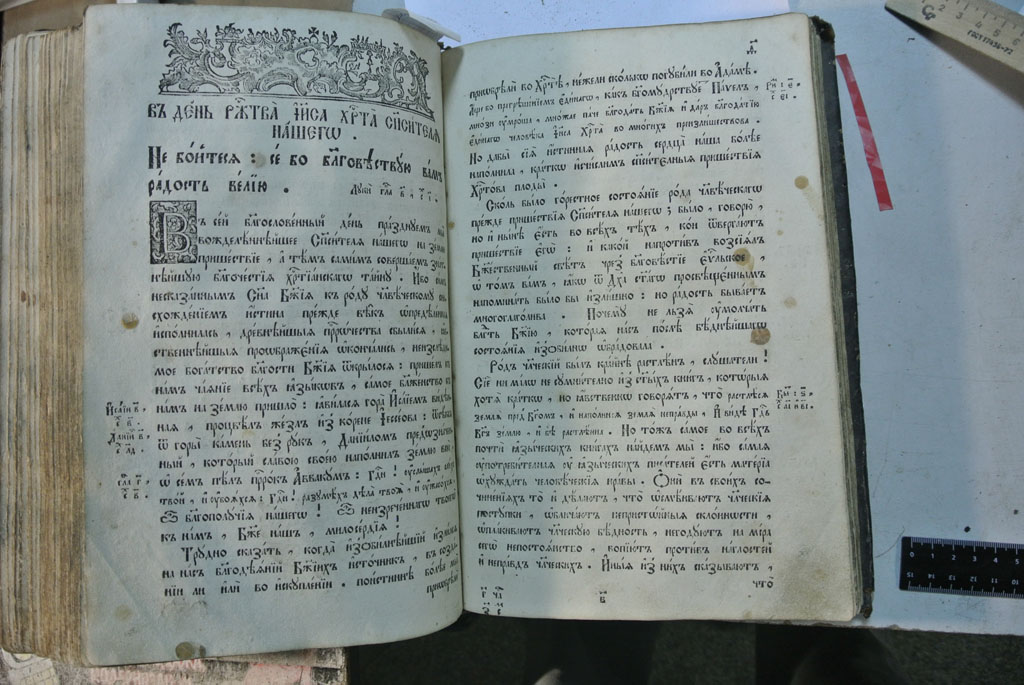 ВЪ ДЕНЬ РЖ҇ТВА І҆И҃СА ХР҇ТА СП҃СИТЕЛѦ
НАШЕГѠ .
Не бо́йтеся : се́ бо благовѣствꙋю ва́мъ
ра́дость ве́лїю .
Въ сей благослове́нный де́нь пра́зднꙋемъ
вожделѣ́ннѣйшее Сп҃си́телѧ на́шегѡ на
прише́ствїе , а тѣ́мъ са́мымъ соверша́емъ
нѣ́йшꙋю благоче́стїѧ хр҇тїа́нскагѡ та́йнꙋ . И҆́бо
несказа́ннымъ Сн҃а Бж҃їѧ къ ро́дꙋ чл҃вѣ́ческомꙋ
схожде́нїемъ и҆́стина пре́жде вѣ̑къ ѡ҆предѣле́ннаѧ
и҆спо́лнилась , древнѣ́йшаѧ прⷪ҇ро́чества сбыли́сѧ ,
ственнѣ́йшыѧ проѡбраже́нїѧ ѡ҆конча́лись ,
мое бога́тство бла́гости Бж҃їѧ ѿкры́лосѧ : прише́лъ къ
на́мъ ча́ѧнїе всѣ́хъ ꙗ҆зы́кѡвъ , са́мое блаже́нство къ
на́мъ на зе́млю пришло̀ : ꙗ҆ви́ласѧ гора̀ І҆са́їемъ ви́дѣн
наѧ , процвѣ́лъ же́злъ и҆з̾ ко́рене І҆ессе́ова :
ѿ горы̀ ка́мень без̾ рꙋ́къ , Данїи́ломъ
ный , кото́рый сла́вою свое́ю напо́лнилъ зе́млю
ѡ҆ се́мъ пѣ́лъ прⷪ҇ро́къ А҆ввакꙋ́мъ : Гдⷭ҇и ! ᲂу҆слы́шахъ слꙋ́хъ
тво́й , и҆ ᲂу҆боѧ́хсѧ : Гдⷭ҇и ! разꙋмѣ́хъ дѣла̀ твоѧ̑ , и҆ ᲂу҆жасо́хсѧ .
Ѽ благополꙋ́чїѧ на́шегѡ ! Ѽ неизрече́ннагѡ твоегѡ̀
къ на́мъ , Бж҃е на́шъ , милосе́рдїѧ !
Трꙋ́дно сказа́ть , когда̀ и҆з̾ѻби́льнѣйшїй
на на́съ благодѣѧ́нїй Бж҃їихъ и҆сто́чникъ , въ созда́
нїи ли и҆лѝ во и҆скꙋпле́нїи . пои́стиннѣ бо́лѣе мы̀
прїѡбрѣлѝ
І҆са́їи в҃ .
Данїи́л в҃ .
прїѡбрѣлѝ во Хр҇тѣ̀ , не́жели ско́лькѡ погꙋби́ли во А҆да́мѣ .
А҆́ще бо прегрѣше́нїемъ є҆ди́нагѡ , ка́къ бг҃омꙋ́дрствꙋетъ Па́ѵелъ ,
мно́зи ᲂу҆мро́ша , мно́жае па́че благода́ть Бж҃їѧ и҆ да́ръ благода́тїю
є҆ди́нагѡ человѣ́ка І҆и҃са Хр҇та̀ во мно́гихъ преизли́шествова .
Но дабы̀ сїѧ̀ и҆́стиннаѧ ра́дость сердца̀ на́ша бо́лѣе
напо́лнила , кра́ткѡ и҆счи́слимъ сп҃си́тельныѧ прише́ствїѧ
Хр҇то́ва плоды̀ .
Ско́ль бы́ло го́рестное состоѧ́нїе ро́да чл҃вѣ́ческагѡ
пре́жде прише́ствїѧ Сп҃си́телѧ на́шегѡ ; бы́ло , говорю̀ ,
но и҆ ны́нѣ є҆́сть во всѣ́хъ тѣ́хъ , ко́и ѿверга́ютъ
прише́ствїе є҆гѡ̀ : и҆ како́й напро́тивъ возсїѧ́лъ
Бж҃е́ственный свѣ́тъ чрез̾ благовѣ́стїе є҆ѵⷢ҇льское ,
ѡ҆ то́мъ ва́мъ , ꙗ҆́кѡ ѿ Дх҃а ст҃а́гѡ просвѣще́ннымъ
напомина́ть бы́ло бы и҆зли́шно : но ра́дость быва́етъ
многоглаго́лива . Почемꙋ̀ не льзѧ̀ ᲂу҆молча́ть
бл҃гть Бж҃їю , кото́раѧ на́съ по́слѣ бѣ́днѣйшагѡ
состоѧ́нїѧ и҆з̾ѻби́льнѡ ѡ҆бра́довала .
Ро́дъ чл҃ческїй бы́лъ кра́йнѣ растлѣ́нъ , слꙋ́шатели !
Сїѐ ни ма́лѡ не сꙋмни́тельно и҆з̾ ст҃ы́хъ кни́гъ , кото́рыѧ
хотѧ̀ кра́ткѡ , но ꙗ҆́вственнѡ говорѧ́тъ , что̀ растлѣ́сѧ
землѧ̀ пред̾ Бг҃омъ , и҆ напо́лнисѧ землѧ̀ непра́вды , И҆ ви́дѣ Гдⷭ҇ь
Бг҃ъ зе́млю , и҆ бѣ̀ растлѣ́нна . Но то́жъ са́мое во всѣ́хъ
почтѝ ꙗ҆зы́ческихъ кни́гахъ на́йдемъ мы̀ : и҆́бо са́маѧ
ᲂу҆потреби́тельнаѧ ᲂу҆ ꙗ҆зы́ческихъ писа́телей є҆́сть мате́рїа
ѡ҆хꙋжда́ть человѣ́ческїѧ нра́вы . Ѻ҆нѝ въ свои́хъ со-
чине́нїѧхъ то̀ и҆ дѣ́лаютъ , что̀ ѡ҆смѣва́ютъ чл҃ческїѧ
постꙋ́пки , ѡ҆блича́ютъ непристѡ́йныѧ скло́нности ,
ѡ҆пла́киваютъ чл҃ческꙋю бѣ́дность , негодꙋ́ютъ на мі́ра
сегѡ̀ непостоѧ́нство , вопїю́тъ проти́въ на́глостей
и҆ непра́вдъ чл҃ческихъ . И҆ны́ѧ и҆з̾ ни́хъ сказыва́ютъ ,
что̀